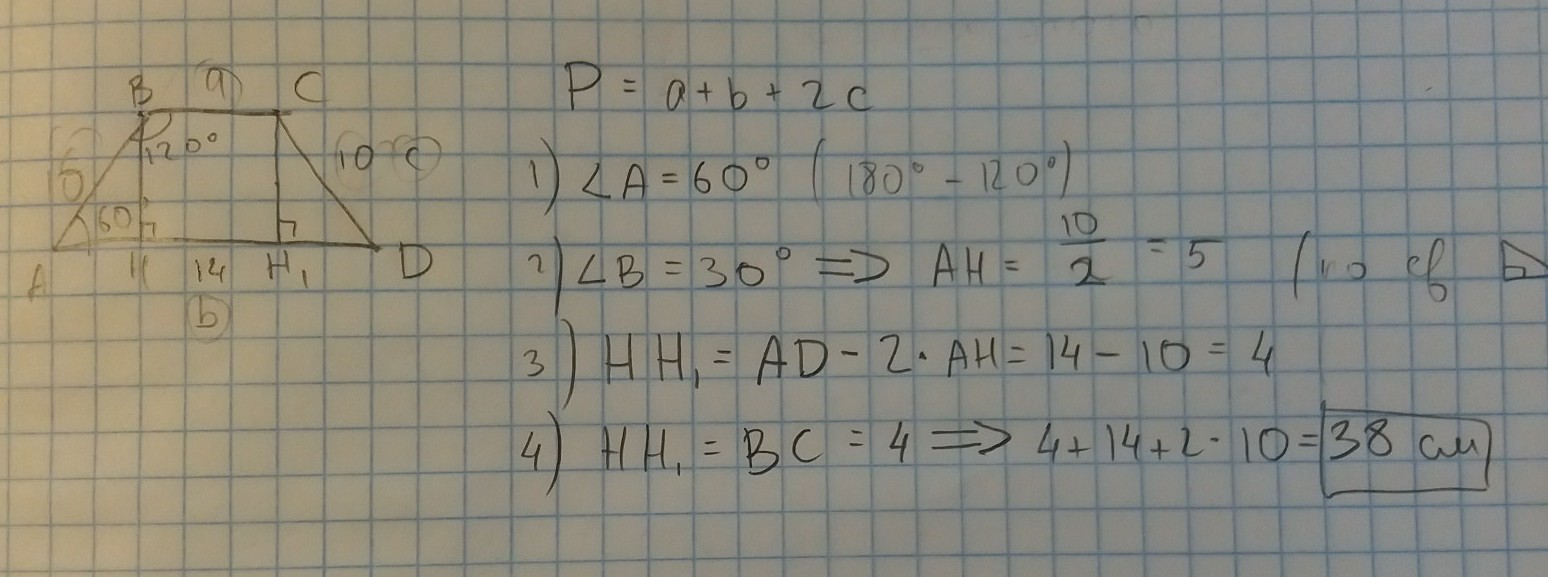 B a C
120°
10 c
60°
A H 14 H₁ D
b
P = a + b + 2c
1) ∠A = 60° (180° - 120°)
2) ∠B = 30° => AH = 10/2 = 5 (по св
3) HH₁ = AD - 2 · AH = 14 - 10 = 4
4) HH₁ = BC = 4 => 4 + 14 + 2 · 10 = 38 см